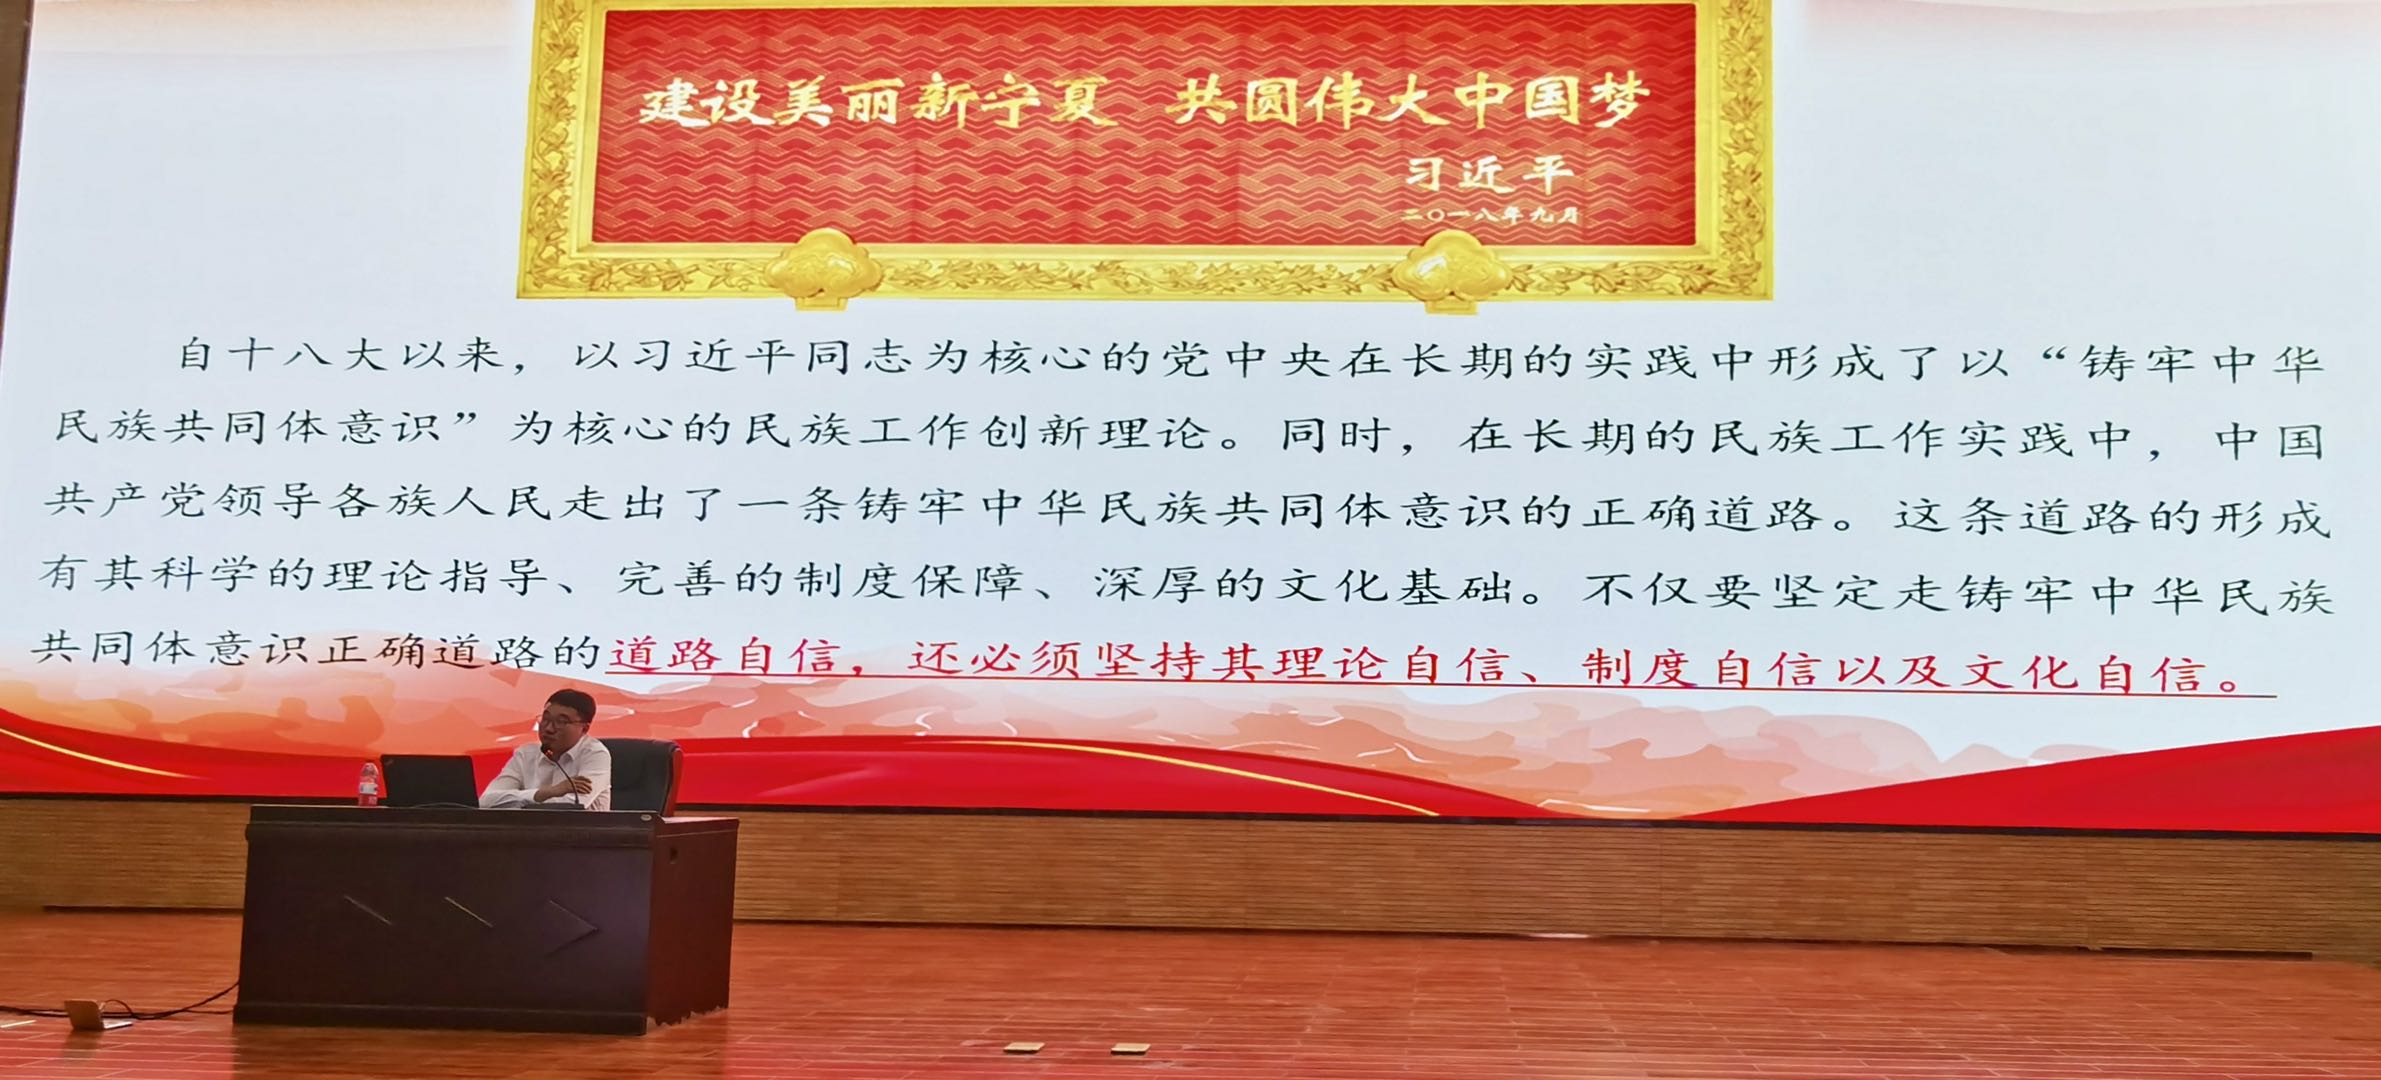 建设美丽新宁夏 共圆伟大中国梦
习近平
二〇一八年九月
自十八大以来，以习近平同志为核心的党中央在长期的实践中形成了以“铸牢中华
民族共同体意识”为核心的民族工作创新理论。同时，在长期的民族工作实践中，中国
共产党领导各族人民走出了一条铸牢中华民族共同体意识的正确道路。这条道路的形成
有其科学的理论指导、完善的制度保障、深厚的文化基础。不仅要坚定走铸牢中华民族
共同体意识正确道路的道路自信，还必须坚持其理论自信、制度自信以及文化自信。